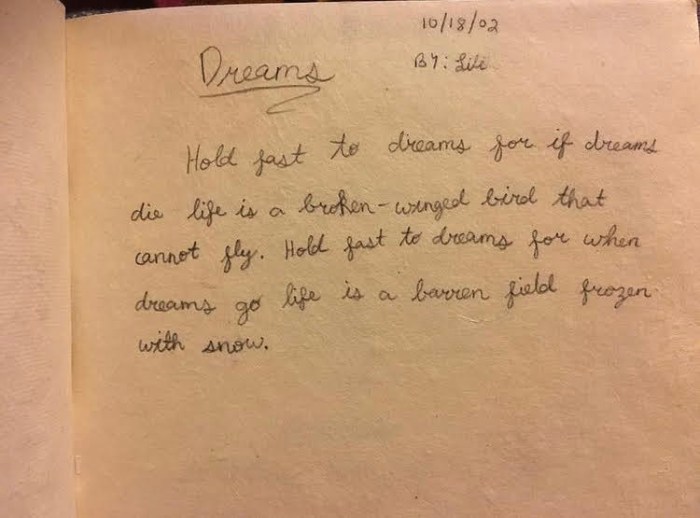 10/18/02
Dreams
BY: Lili
Hold fast to dreams for if dreams
die life is a broken-winged bird that
cannot fly. Hold fast to dreams for when
dreams go life is a barren field frozen
with snow.